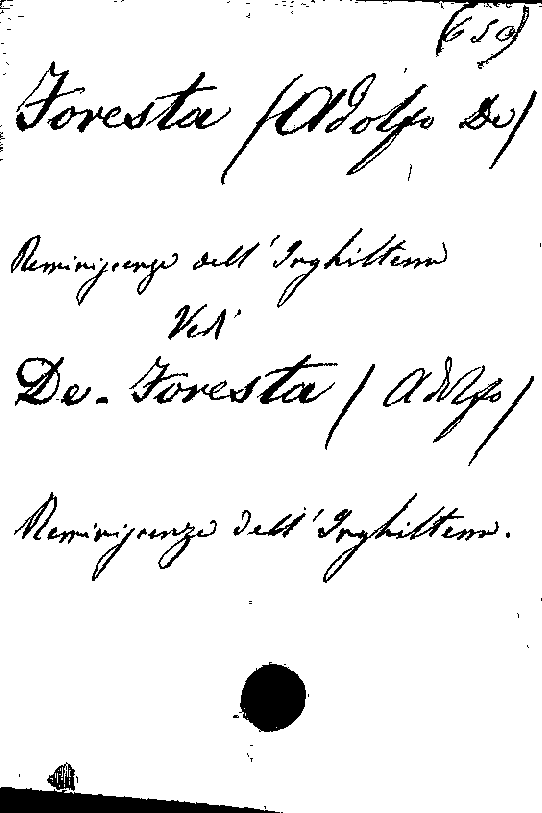 (650)
Foresta (Adolfo De)
Reminiscenze dell'Inghilterra
Ved'
De-Foresta (Adolfo)
Reminiscenze dell'Inghilterra.